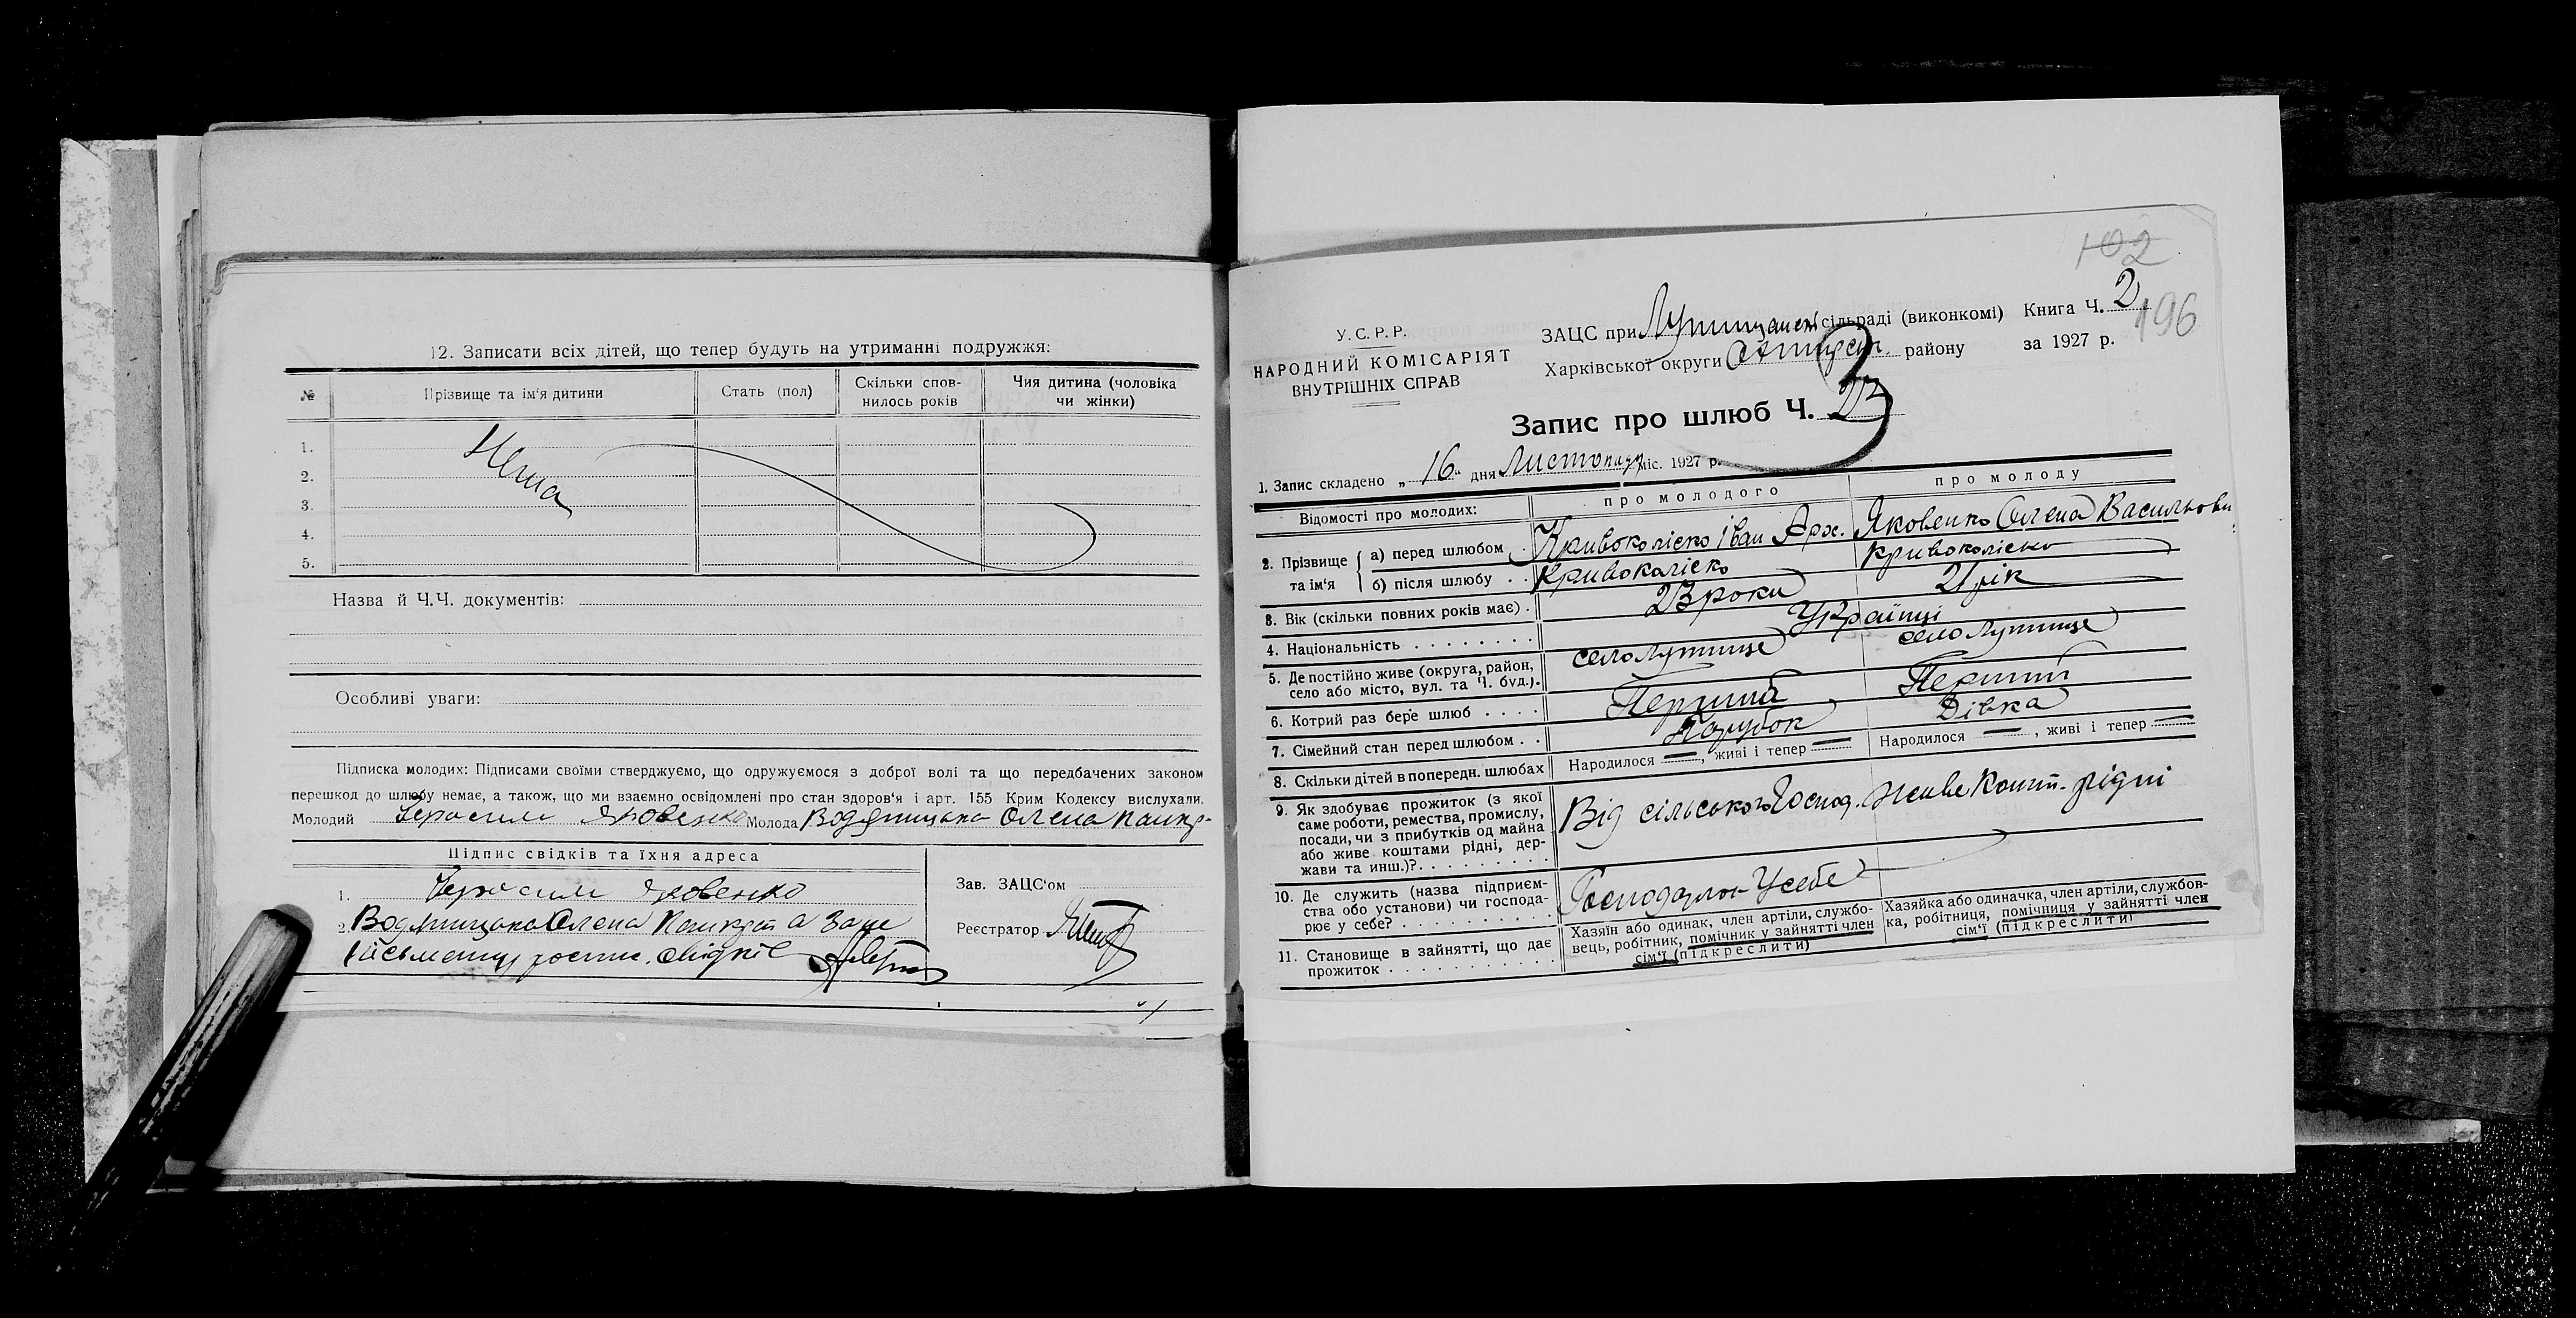 12. Записати всіх дітей, що тепер будуть на утриманні подружжя:
№ Прізвище та ім'я дитини Стать (пол) Скільки спов- нилось років Чия дитина (чоловіка чи жінки)
1. Нема
2.
3.
4.
5.
Назва й Ч.Ч. документів:
Особливі уваги:
Підписка молодих: Підписами своїми стверджуємо, що одружуємося з доброї волі та що передбачених законом
перешкод до шлюбу немає, а також, що ми взаємно освідомлені про стан здоров'я і арт. 155 Крим Кодексу вислухали.
Молодий Герасим Яковенко Молода Водяницька Олена
Підпис свідків та їхня адреса
1. Герасим Яковенко
2. Водяницька Олена а за не
свідків
Зав. ЗАЦС'ом
Реєстратор
102
196
У.С.Р.Р.
НАРОДНИЙ КОМІСАРІЯТ
ВНУТРІШНІХ СПРАВ
ЗАЦС при Лутищанскі сільраді (виконкомі) Книга Ч. 2
Харківської округи Охтирськ. району за 1927 р.
Запис про шлюб Ч. 23
1. Запис складено „16" дня Листопаду міс. 1927 р.
Відомості про молодих: про молодого про молоду
2. Прізвище та ім'я
а) перед шлюбом Кривоколіско Іван Арх. Яковенко Олена Васильовн
б) після шлюбу Кривоколіско Кривоколіско
3. Вік (скільки повних років має) 23 роки 21 рік
4. Національність Українці
5. Де постійно живе (округа, район, село або місто, вул. та Ч. буд.). село Лутище село Лутище
6. Котрий раз бере шлюб Перший Перший
7. Сімейний стан перед шлюбом Парубок Дівка
8. Скільки дітей в попередн. шлюбах Народилося —, живі і тепер — Народилося —, живі і тепер —
9. Як здобуває прожиток (з якої
саме роботи, ремества, промислу,
посади, чи з прибутків од майна
або живе коштами рідні, дер-
жави та инш.)? Від сільського Господ. живе Кошт. рідні
10. Де служить (назва підприєм-
ства обо установи) чи господа-
рює у себе? Господарює У себе
11. Становище в зайнятті, що дає
прожиток
Хазяїн або одинак, член артіли, службо-
вець, робітник, помічник у зайнятті член
сім'ї (підкреслити)
Хазяйка або одиначка, член артіли, службов-
ка, робітниця, помічниця у зайнятті член
сім'ї (підкреслити)